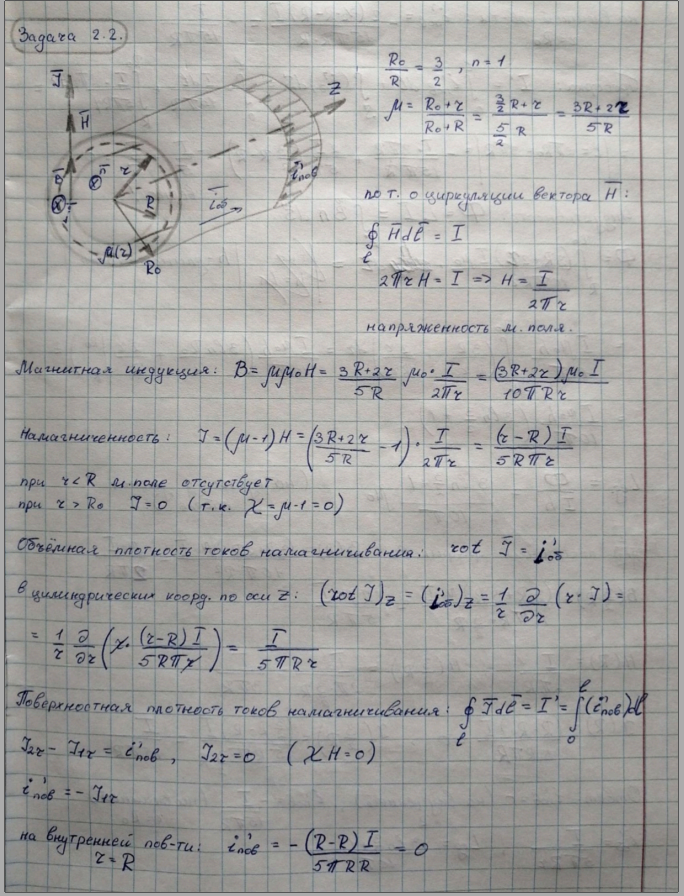 Задача 2.2.
R₀/R = 3/2 , n = 1
μ = (R₀+r)/(R₀+R) = (3/2 R+r)/(5/2 R) = (3R+2r)/5R
J̄
H̄
B̄
n̄
r
R
R₀
μ(r)
Z
i'об
i'пов
по т. о циркуляции вектора H̄ :
∮ₗ H̄dl̄ = I
2πrH = I => H = I/2πr
напряженность м. поля.
Магнитная индукция: B = μμ₀H = (3R+2r)/5R μ₀ · I/2πr = (3R+2r)μ₀I/10πRr
Намагниченность: J = (μ-1)H = ((3R+2r)/5R - 1) · I/2πr = (r-R)I/5Rπr
при r<R м. поле отсутствует
при r>R₀ J=0 (т.к. χ=μ-1=0)
Объёмная плотность токов намагничивания: rot J̄ = i'об
в цилиндрических коорд. по оси z: (rot J)z = (i'об)z = 1/r ∂/∂r (r·J) =
= 1/r ∂/∂r (r· (r-R)I/5Rπr) = I/5πRr
Поверхностная плотность токов намагничивания: ∮ₗ J̄dl̄ = I' = ∫₀ˡ(i'пов)dl
J₂τ - J₁τ = i'пов , J₂τ=0 (χH=0)
i'пов = -J₁τ
на внутренней пов-ти: i'пов = - (R-R)I/5πRR = 0
r=R